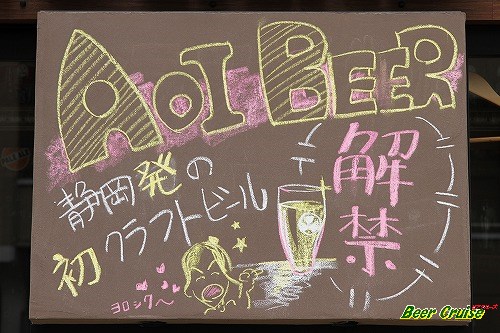 AOI BEER
静岡発の
初クラフトビール
解禁
ヨロシク〜
Beer Cruise